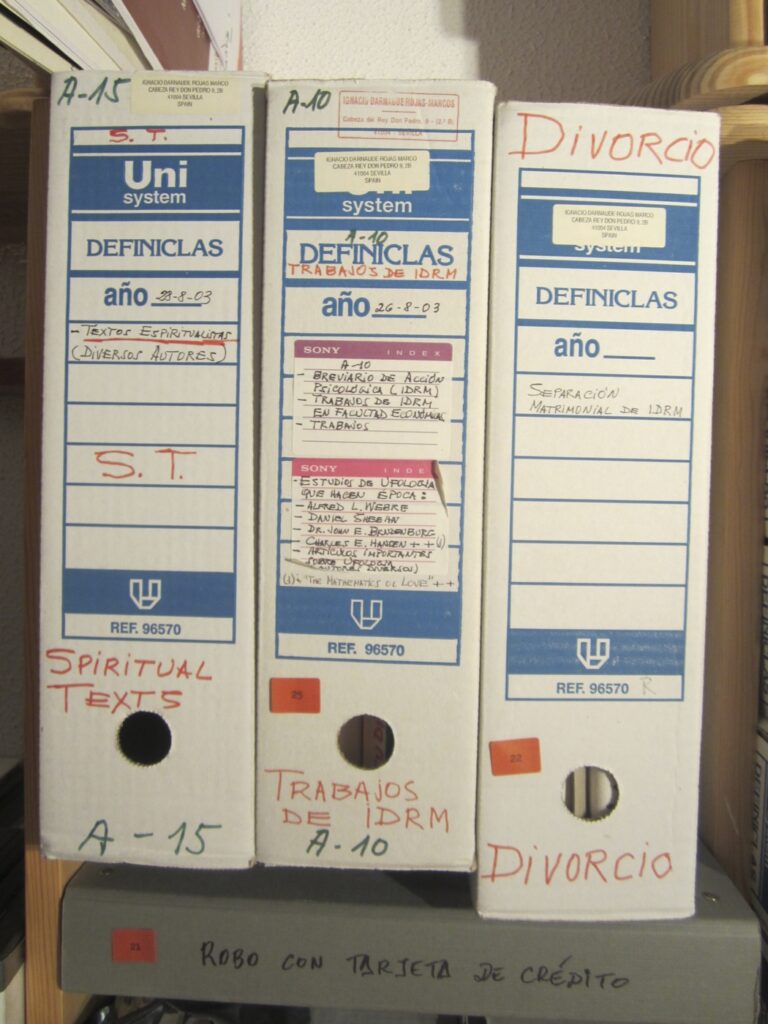 A-15
IGNACIO DARNAUDE ROJAS MARCO
CABEZA REY DON PEDRO 9, 2B
41004 SEVILLA
SPAIN
S. T.
Uni
system
DEFINICLAS
año 28-8-03
- TEXTOS ESPIRITUALISTAS
(DIVERSOS AUTORES)
S. T.
REF. 96570
SPIRITUAL
TEXTS
A-15
A-10
IGNACIO DARNAUDE ROJAS MARCOS
Cabeza del Rey Don Pedro, 9 - (2.º B)
41004 - SEVILLA
IGNACIO DARNAUDE ROJAS MARCO
CABEZA REY DON PEDRO 9, 2B
41004 SEVILLA
SPAIN
Uni
system
A-10
DEFINICLAS
TRABAJOS DE IDRM
año 26-8-03
SONY INDEX
A-10
- BREVIARIO DE ACCIÓN
PSICOLÓGICA (IDRM)
- TRABAJOS DE IDRM
EN FACULTAD ECONÓMICAS
- TRABAJOS
SONY INDE
- ESTUDIOS DE UFOLOGIA
QUE HACEN ÉPOCA:
- ALFRED L. WEBRE
- DANIEL SHEEHAN
- DR. JOHN E. BRANDENBURG
CHARLES E. HANSEN ++(1)
- ARTÍCULOS IMPORTANTES
SOBRE UFOLOGIA
AUTORES DIVERSOS)
(1): "THE MATHEMATICS OF LOVE" ++
REF. 96570
25
TRABAJOS
DE IDRM
A-10
DIVORCIO
IGNACIO DARNAUDE ROJAS MARCO
CABEZA REY DON PEDRO 9, 2B
41004 SEVILLA
SPAIN
system
DEFINICLAS
año
SEPARACIÓN
MATRIMONIAL DE IDRM
REF. 96570 R
22
DIVORCIO
21
ROBO CON TARJETA DE CRÉDITO